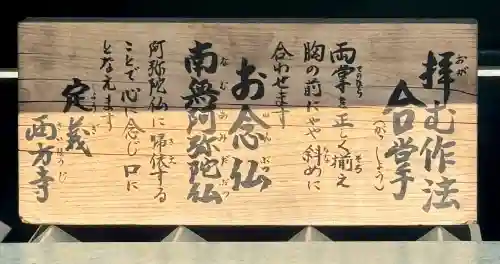 拝む作法
合掌(がっしょう)
両掌を正しく揃え
胸の前にやや斜めに
合わせます
お念仏
南無阿弥陀仏
阿弥陀仏に帰依する
ことで心に念じ口に
となえます
定義
西方寺